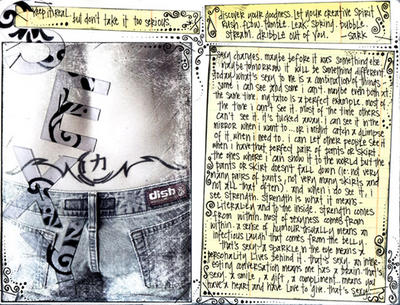 keep it real.
but don't take it too serious.
SEXY
dish
discover your goodness. let your creative spirit
rush. flow. tumble. leak. spring. bubble.
stream. dribble out of you. - sark
sexy changes. maybe before it was something else.
maybe tomorrow it will be something different
today what's sexy to me is a combination of things
some i can see and some i can't. maybe even both at
the same time. my tattoo is a perfect example. most of
the time i can't see it. most of the time others
can't see it. it's tucked away. i can see it in the
mirror when i want to... or i might catch a glimpse
of it when i need to. i can let other people see it
when i have that perfect pair of pants or skirt
the ones where i can show it to the world but the
pants or skirt doesn't fall down (ie: not very
many pairs of pants, not very many skirts and
not all that often). and when i do see it, i
see strength. strength is what it means -
literally and to the inside. strength comes
from within. most of sexyness comes from
within. a sense of humour usually means an
infectious laugh that comes from the belly.
that's sexy. a sparkle in the eye means a
personality lives behind it. that's sexy. an inter-
esting conversation means one has a brain. that's
sexy. a smile, a gift, a compliment... means you
have a heart and have love to give. that's sexy.